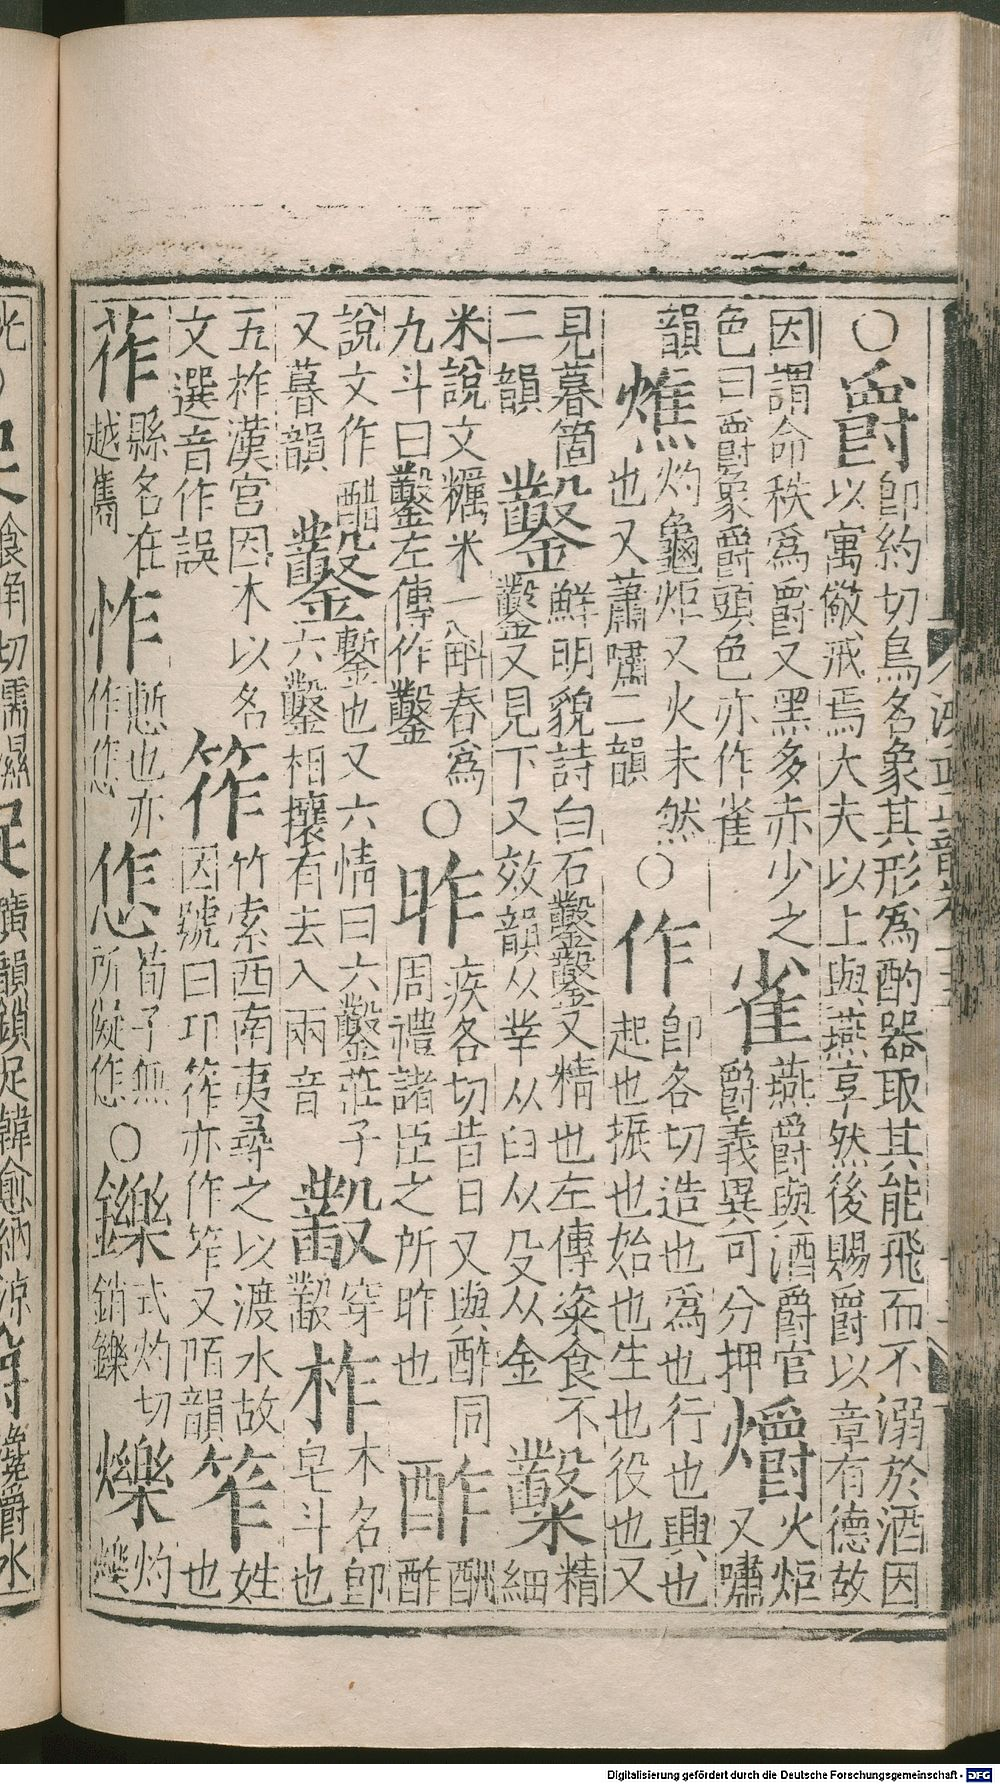 ○爵卽約切鳥名象其形為酌器取其能飛而不溺於酒因以寓儆戒焉大夫以上與燕享然後賜爵以章有德故
因謂命秩為爵又黑多赤少之色曰爵象爵頭色亦作雀雀燕爵與酒爵官爵義異可分押爝火炬又嘯
韻燋灼龜炬又火未然也又蕭嘯二韻○作卽各切造也為也行也興也起也振也始也生也役也又
見暮箇二韻鑿鮮明貌詩白石鑿鑿又精也左傳粢食不鑿又見下又效韻从丵从臼从殳从金糳精細
米說文糲米一斛舂為九斗曰鑿左傳作鑿○昨疾各切昔日又與酢同周禮諸臣之所昨也酢酬酢
說文作醋又暮韻鑿鏨也又六情曰六鑿莊子六鑿相攘有去入兩音穿柞木名卽皂斗也
五柞漢宮因木以名文選音作誤筰竹索西南夷尋之以渡水故因號曰邛筰亦作笮又陌韻笮姓也
莋縣名在越巂怍慙也亦作㤰㤰荀子無所儗㤰○鑠式灼切銷鑠爍灼爍
Digitalisierung gefördert durch die Deutsche Forschungsgemeinschaft - DFG